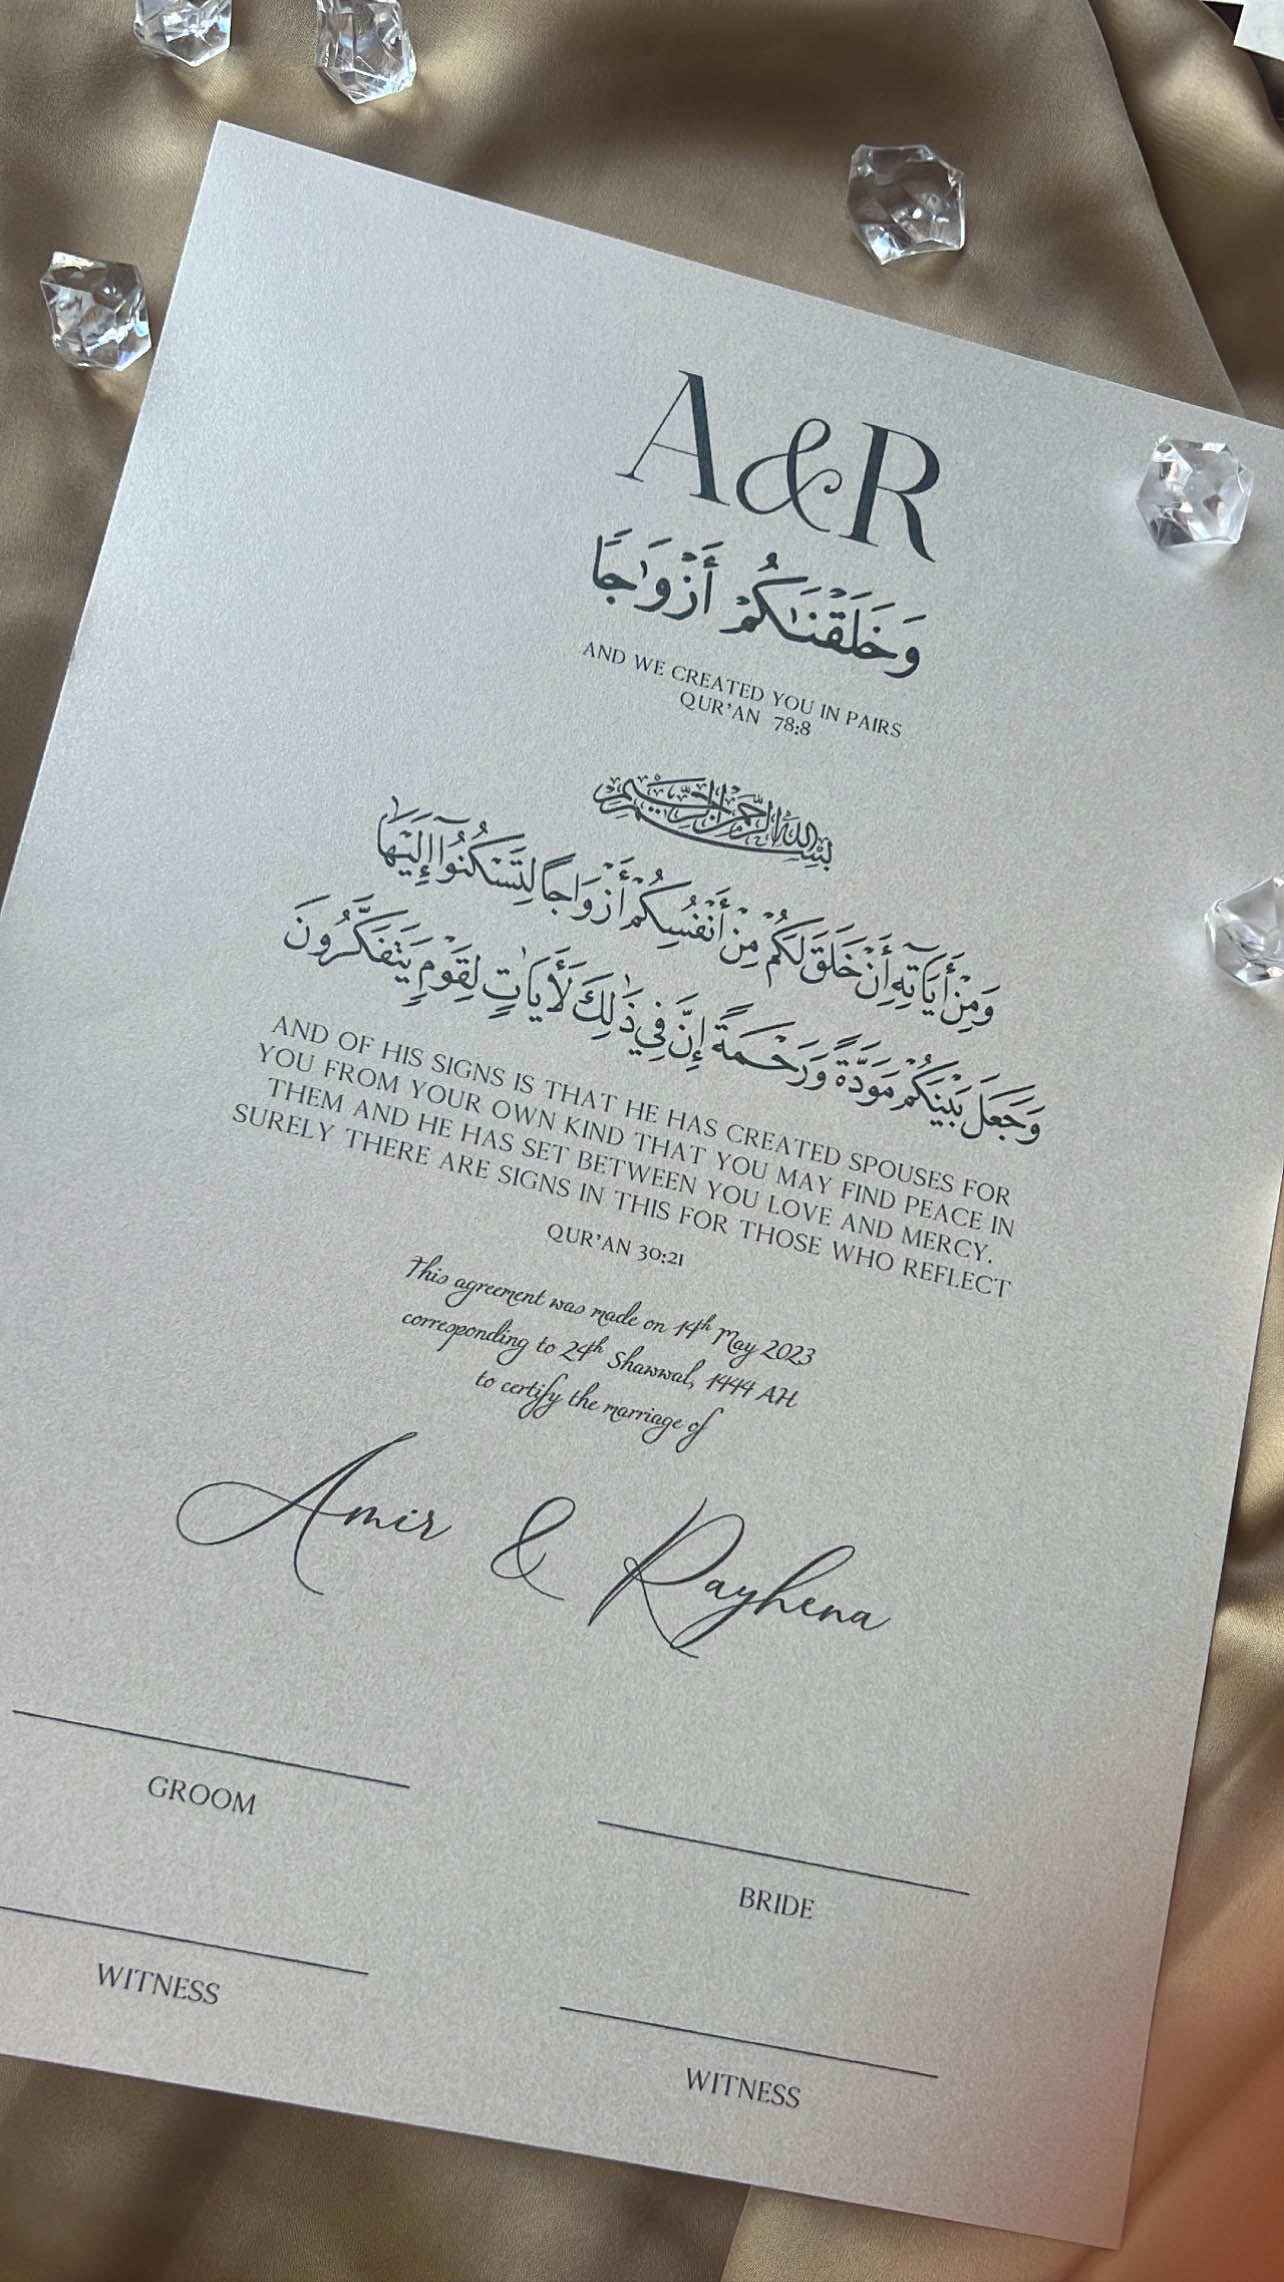 A&R
وَخَلَقْنَٰكُمْ أَزْوَٰجًا
AND WE CREATED YOU IN PAIRS
QUR'AN 78:8
بِسْمِ اللهِ الرَّحْمٰنِ الرَّحِيْمِ
وَمِنْ أَيَاتِهِ أَنْ خَلَقَ لَكُمْ مِنْ أَنْفُسِكُمْ أَزْوَاجًا لِتَسْكُنُوٓا إِلَيْهَا
وَجَعَلَ بَيْنَكُمْ مَوَدَّةً وَرَحْمَةً إِنَّ فِي ذَٰلِكَ لَأَيَاتٍ لِقَوْمٍ يَتَفَكَّرُونَ
AND OF HIS SIGNS IS THAT HE HAS CREATED SPOUSES FOR
YOU FROM YOUR OWN KIND THAT YOU MAY FIND PEACE IN
THEM AND HE HAS SET BETWEEN YOU LOVE AND MERCY.
SURELY THERE ARE SIGNS IN THIS FOR THOSE WHO REFLECT
QUR'AN 30:21
This agreement was made on 14th May 2023
corresponding to 24th Shawwal, 1444 AH
to certify the marriage of
Amir & Rayhena
GROOM
BRIDE
WITNESS
WITNESS